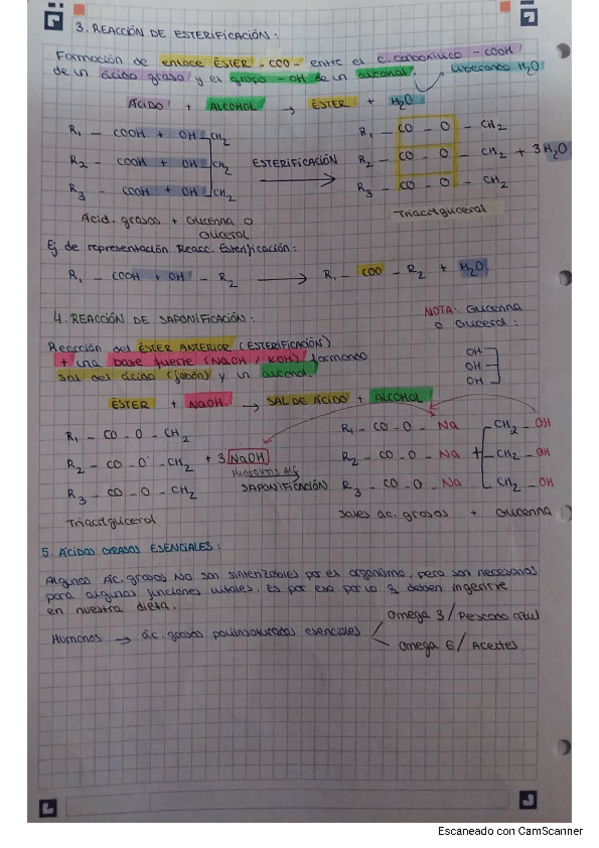 3. REACCIÓN DE ESTERIFICACIÓN:
Formación de enlace ÉSTER -COO- entre el c. carboxílico -COOH
de un ácido graso y el grupo -OH de un alcohol. liberando H2O
ÁCIDO + ALCOHOL → ÉSTER + H2O
R1 - COOH + OH - CH2
R2 - COOH + OH - CH2
R3 - COOH + OH - CH2
ESTERIFICACIÓN
R1 - CO - O - CH2
R2 - CO - O - CH2 + 3 H2O
R3 - CO - O - CH2
Ácid. grasos + Glicerina o
Glicerol
Triacilglicerol
Ej de representación Reacc. Esterificación:
R1 - COOH + OH - R2 → R1 - COO - R2 + H2O
4. REACCIÓN DE SAPONIFICACIÓN:
NOTA: Glicerina
o Glicerol:
OH
OH
OH
Reacción del ÉSTER ANTERIOR (ESTERIFICACIÓN)
+ una base fuerte (NaOH / KOH) formando
sal del ácido (jabón) y un alcohol.
ÉSTER + NaOH → SAL DE ÁCIDO + ALCOHOL
R1 - CO - O - CH2
R2 - CO - O - CH2 + 3 NaOH
R3 - CO - O - CH2
SAPONIFICACIÓN
R1 - CO - O - Na
R2 - CO - O - Na +
R3 - CO - O - Na
CH2 - OH
CH2 - OH
CH2 - OH
Triacilglicerol
Sales ác. grasos + Glicerina
5. ÁCIDOS GRASOS ESENCIALES:
Algunos Ác. grasos NO son sintetizables por el organismo, pero son necesarios
para algunas funciones vitales. Es por eso por lo q deben ingerirse
en nuestra dieta.
Humanos → ác. grasos poliinsaturados esenciales
Omega 3 / Pescado azul
Omega 6 / Aceites
Escaneado con CamScanner